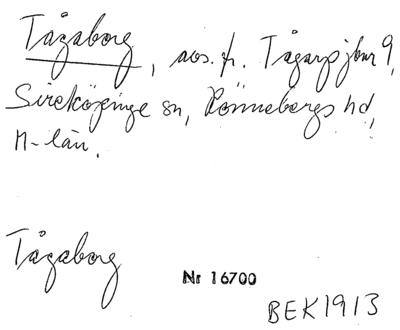 Tågaborg, avs. fr. Tågarp jbnr 9,
Sireköpinge sn, Rönnebergs hd,
M-län.
Tågaborg
Nr 16700
BEK1913